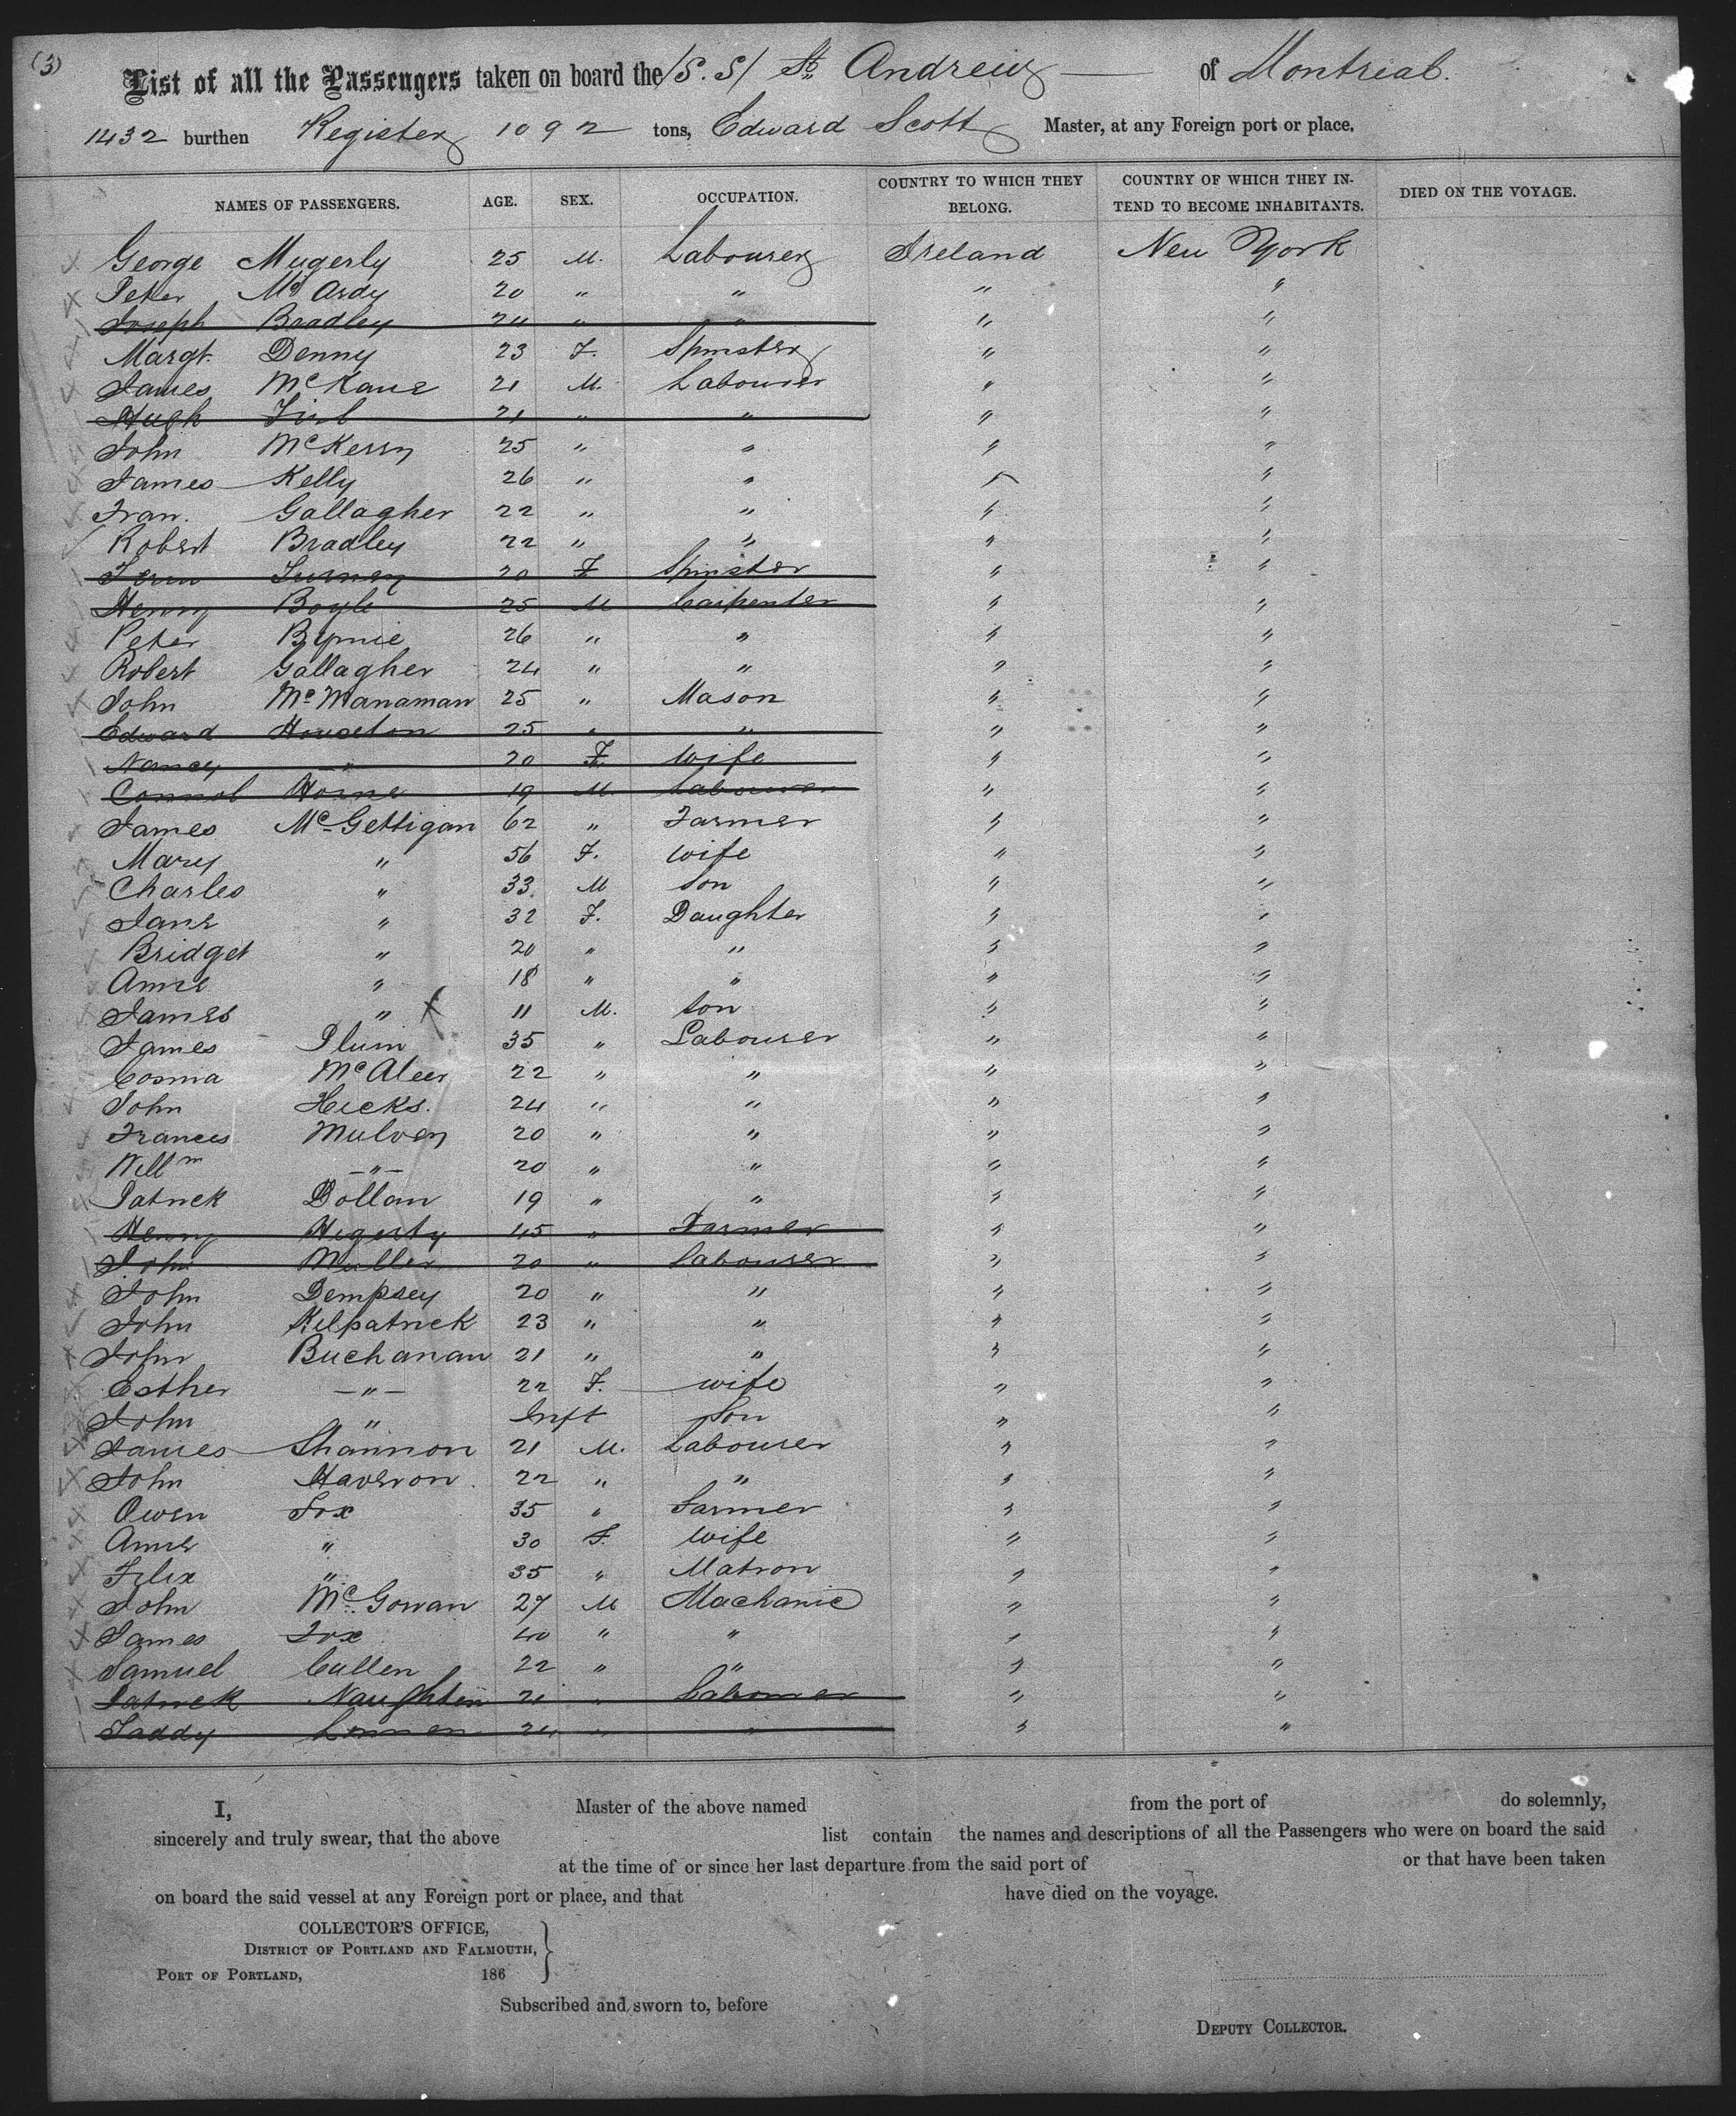 (3)
List of all the Passengers taken on board the /S. S/ St. Andrew of Montreal.
1432 burthen Register 1092 tons, Edward Scott Master, at any Foreign port or place.
NAMES OF PASSENGERS. AGE. SEX. OCCUPATION. COUNTRY TO WHICH THEY BELONG. COUNTRY OF WHICH THEY INTEND TO BECOME INHABITANTS. DIED ON THE VOYAGE.
George Mugerly 25 M. Labourer Ireland New York
Peter McArdy 20 " " " "
Joseph Bradley 24 " " " "
Margt. Denny 23 F. Spinster " "
James McKane 21 M. Labourer " "
Hugh 21 " " " "
John McKerry 25 " " " "
James Kelly 26 " " " "
Fran. Gallagher 22 " " " "
Robert Bradley 22 " " " "
20 F Spinster " "
Henry Boyle 25 M Carpenter " "
Peter Byrnie 26 " " " "
Robert Gallagher 24 " " " "
John McManaman 25 " Mason " "
Edward Houseton 25 " " " "
Nancy " 20 F. Wife " "
Connol Horne 19 M. Labourer " "
James McGettigan 62 " Farmer " "
Mary " 56 F. Wife " "
Charles " 33 M Son " "
Jane " 32 F. Daughter " "
Bridget " 20 " " " "
Anne " 18 " " " "
James " 11 M. Son " "
James 35 " Labourer " "
McAleer 22 " " " "
John Hicks. 24 " " " "
Frances Mulven 20 " " " "
Willm " 20 " " " "
Patrick Dollan 19 " " " "
Henry Hegerty 45 " Farmer " "
John Mullen 20 " Labourer " "
John Dempsey 20 " " " "
John Kilpatrick 23 " " " "
John Buchanan 21 " " " "
Esther " 22 F. wife " "
John " Inft Son " "
James Shannon 21 M. Labourer " "
John Haveron 22 " " " "
Owen Fox 35 " Farmer " "
Anne " 30 F. Wife " "
Felix " 35 " Matron " "
John McGowan 27 M Machanic " "
James Fox 40 " " " "
Samuel Cullen 22 " " " "
Patrick Naughten 21 " Labourer " "
Paddy 24 " " " "
I, Master of the above named from the port of do solemnly,
sincerely and truly swear, that the above list contain the names and descriptions of all the Passengers who were on board the said
at the time of or since her last departure from the said port of or that have been taken
on board the said vessel at any Foreign port or place, and that have died on the voyage.
COLLECTOR'S OFFICE,
DISTRICT OF PORTLAND AND FALMOUTH,
PORT OF PORTLAND, 186
Subscribed and sworn to, before
DEPUTY COLLECTOR.